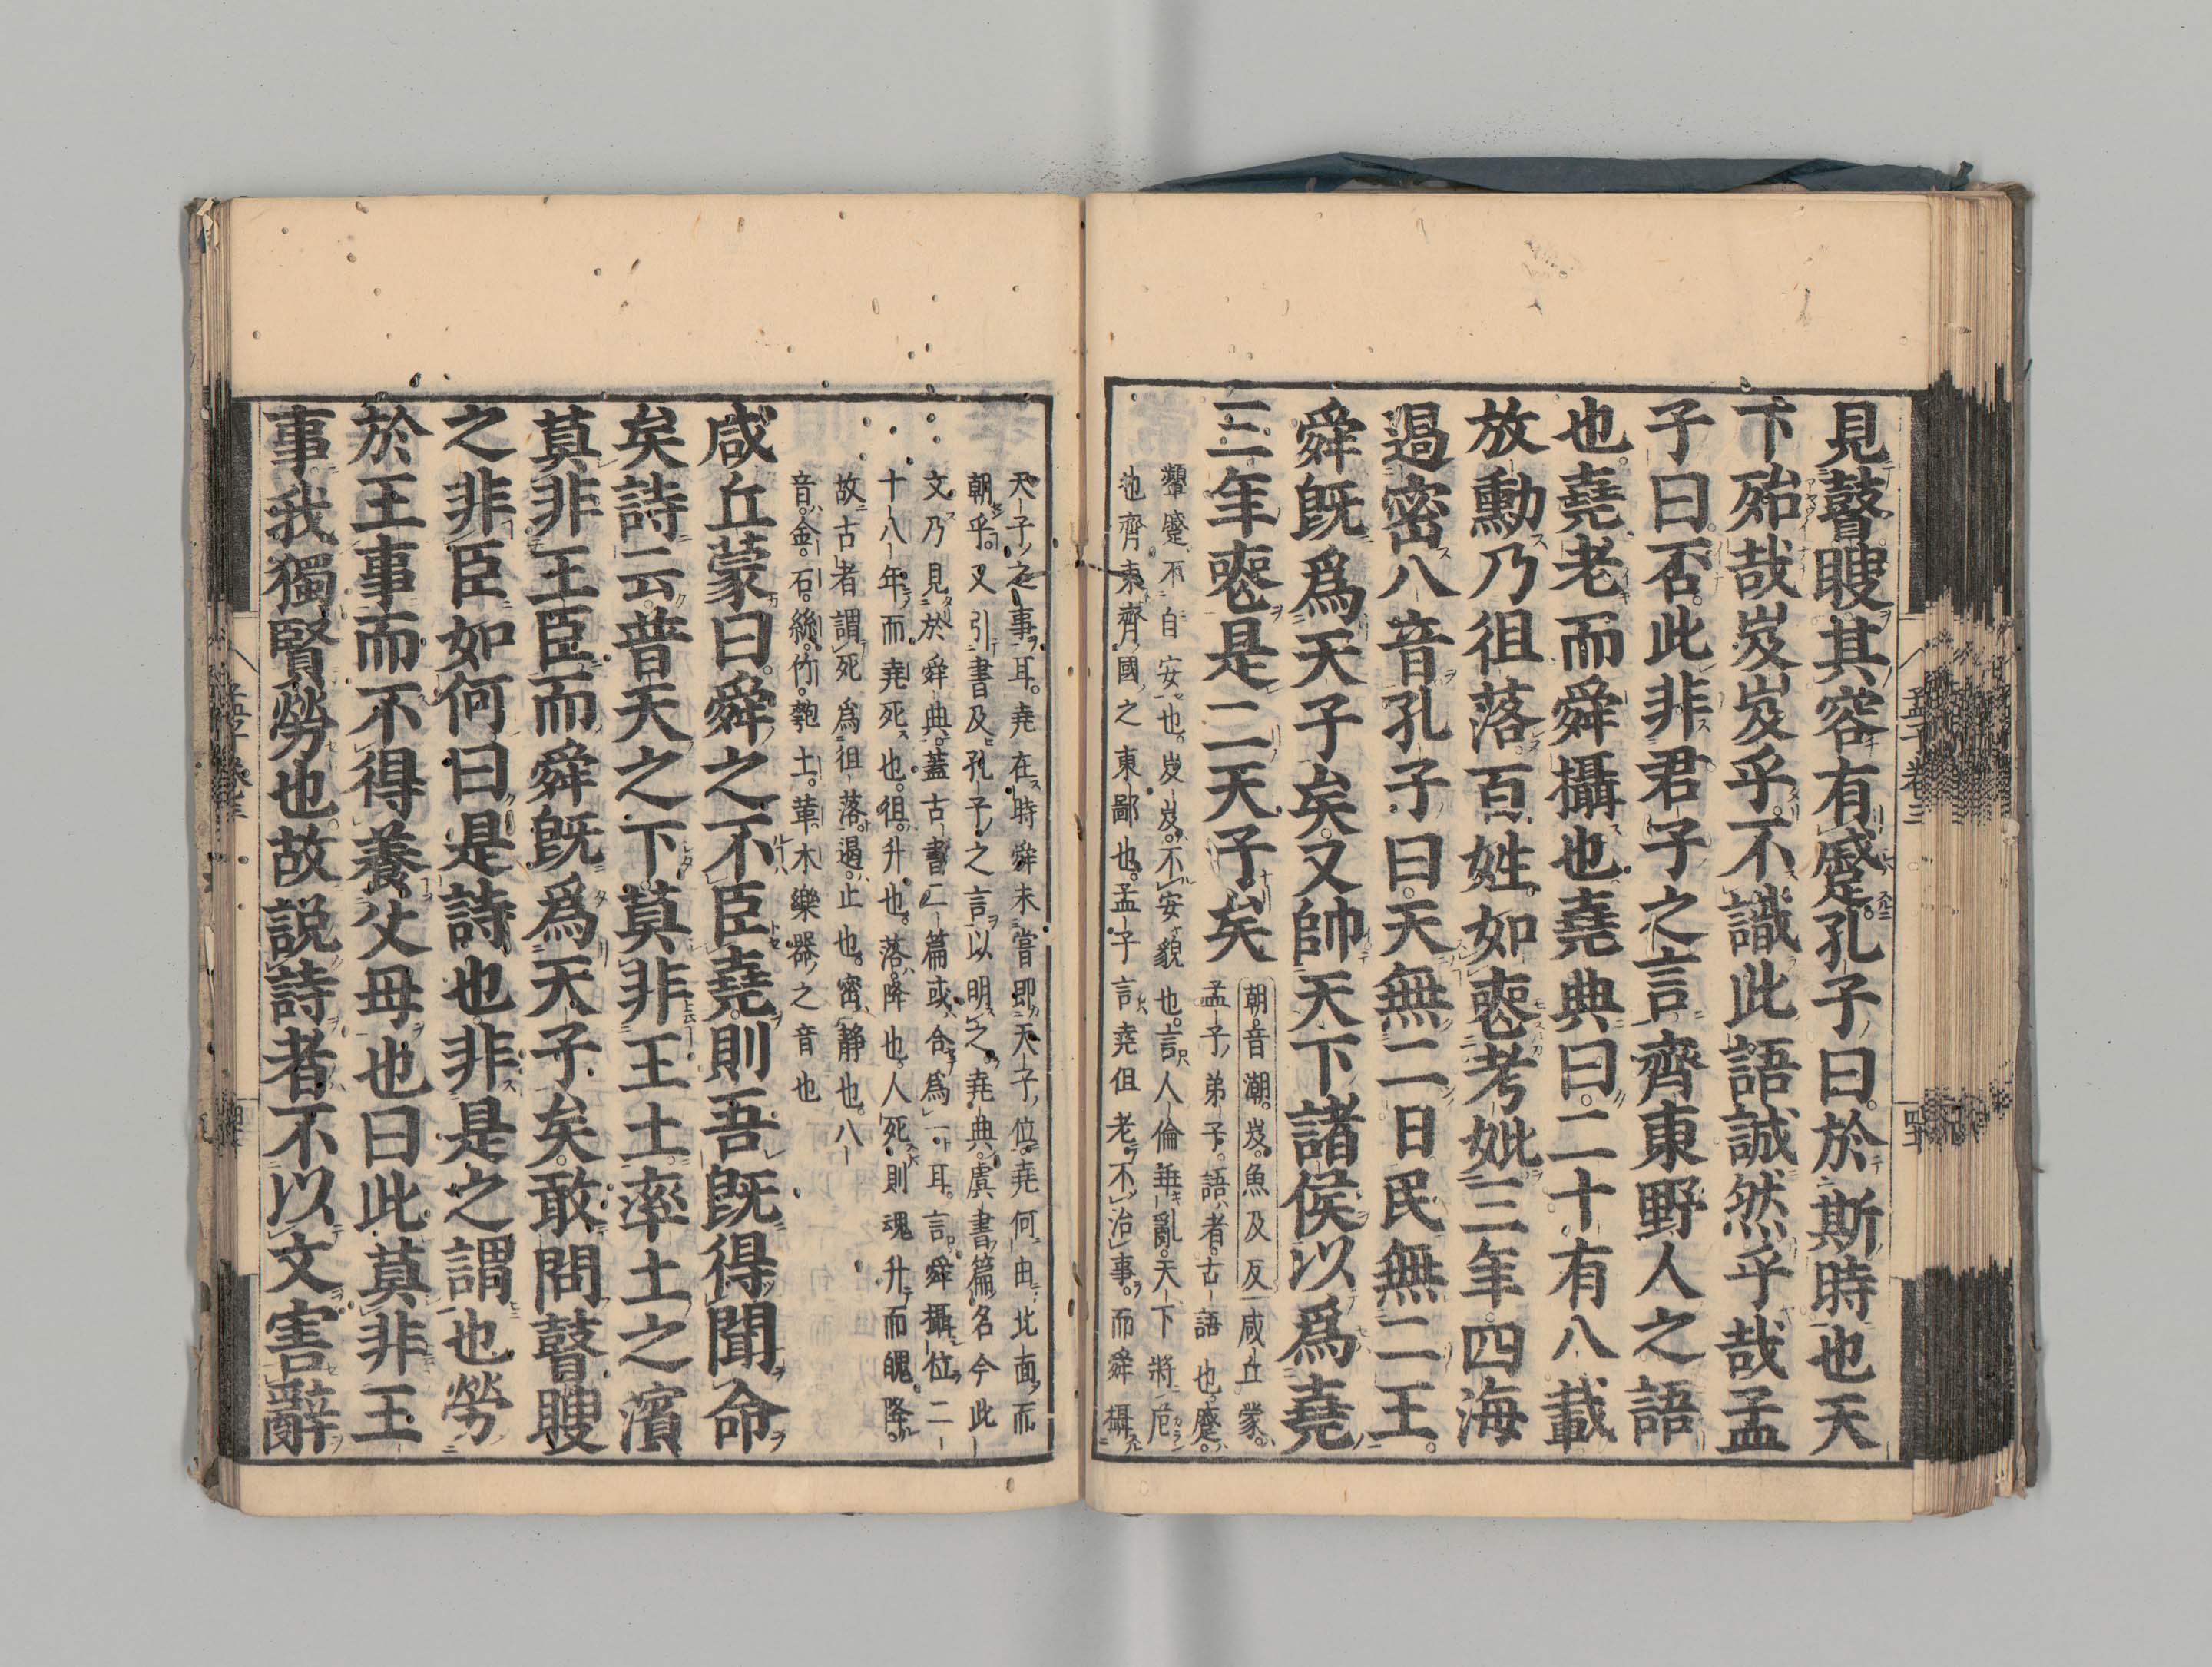 見瞽瞍其容有蹙孔子曰於斯時也天
下殆哉岌岌乎不識此語誠然乎哉孟
子曰否此非君子之言齊東野人之語
也堯老而舜攝也堯典曰二十有八載
放勳乃徂落百姓如喪考妣三年四海
遏密八音孔子曰天無二日民無二王
舜既爲天子矣又帥天下諸侯以爲堯
三年喪是二天子矣
朝音潮岌魚及反咸丘蒙
孟子弟子語者古語也蹙
顰蹙不自安也岌岌不安貌也言人倫乖亂天下將危
也齊東齊國之東鄙也孟子言堯但老不治事而舜攝
孟子卷三
天子之事耳堯在時舜未嘗即天子位堯何由北面而
朝乎又引書及孔子之言以明之堯典虞書篇名今此
文乃見於舜典蓋古書二篇或合爲一耳言舜攝位二
十八年而堯死也徂升也落降也人死則魂升而魄降
故古者謂死爲徂落遏止也密靜也八
音金石絲竹匏土革木樂器之音也
咸丘蒙曰舜之不臣堯則吾既得聞命
矣詩云普天之下莫非王土率土之濱
莫非王臣而舜既爲天子矣敢問瞽瞍
之非臣如何曰是詩也非是之謂也勞
於王事而不得養父母也曰此莫非王
事我獨賢勞也故説詩者不以文害辭